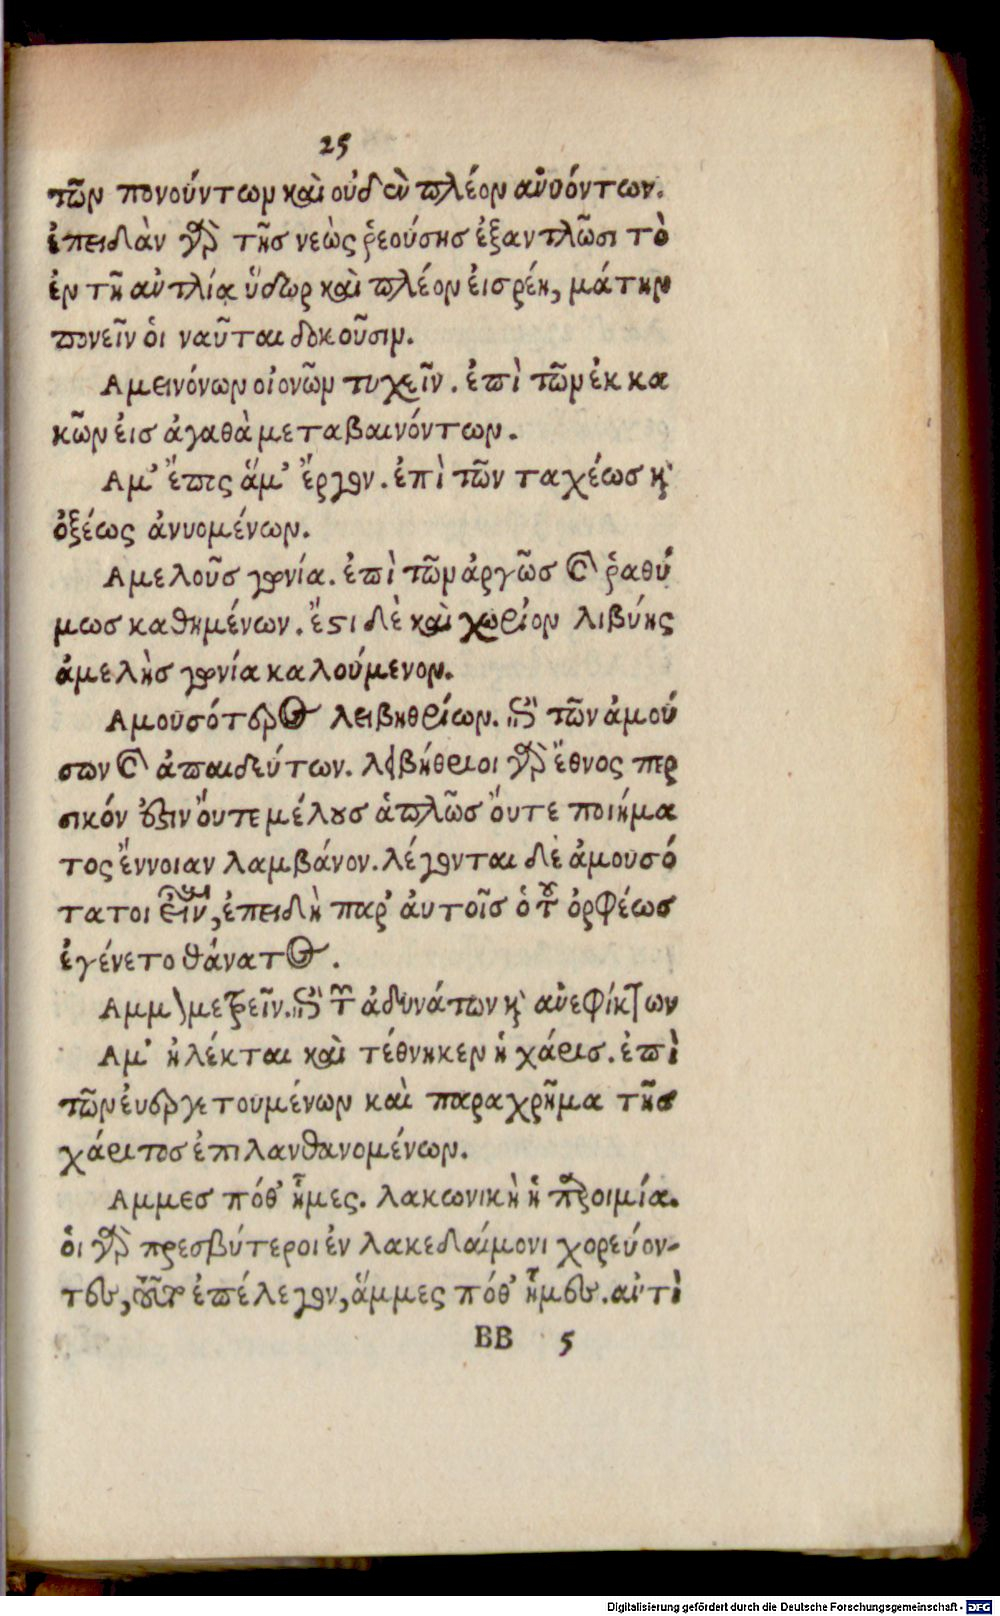 25
τῶν πονούντων καὶ οὐδὲν πλέον ἀνυόντων.
ἐπειδὰν γὰρ τῆς νεὼς ῥεούσης ἐξαντλῶσι τὸ
ἐν τῇ ἀντλίᾳ ὕδωρ καὶ πλέον εἰσρέῃ, μάτην
πονεῖν ὁι ναῦται δοκοῦσιν.
Αμεινόνων οἰονῶν τυχεῖν. ἐπὶ τῶν ἐκ κα
κῶν ἐις ἀγαθὰ μεταβαινόντων.
Αμ' ἔπος ἅμ' ἔργον. ἐπὶ τῶν ταχέως κὶ
ὀξέως ἀνυομένων.
Αμελοῦς γωνία. ἐπὶ τῶν ἀργῶς καὶ ῥαθύ
μως καθημένων. ἔστι δὲ καὶ χωρίον λιβύης
ἀμελὴς γωνία καλούμενον.
Αμουσότερος λειβηθρίων. ἐπὶ τῶν ἀμού
σων καὶ ἀπαιδεύτων. λειβήθριοι γὰρ ἔθνος περ
σικόν ἐστιν ὄυτε μέλους ἁπλῶς ὄυτε ποιήμα
τος ἔννοιαν λαμβάνον. λέγονται δὲ ἀμουσό
τατοι εἶναι, ἐπειδὴ παρ' ἀυτοῖς ὁ τοῦ ὀρφέως
ἐγένετο θάνατος.
Αμμον μετρεῖν. ἐπὶ τῶν ἀδυνάτων κὶ ἀνεφίκτων
Αμ' ἠλέκται καὶ τέθνηκεν ἡ χάρις. ἐπὶ
τῶν ἐυεργετουμένων καὶ παραχρῆμα τῆς
χάριτος ἐπιλανθανομένων.
Αμμες πόθ' ἦμες. λακωνικὴ ἡ παροιμία.
ὁι γὰρ πρεσβύτεροι ἐν λακεδαίμονι χορεύον-
τες, τοῦτο ἐπέλεγον, ἅμμες πόθ' ἦμες. ἀντὶ
BB 5
Digitalisierung gefördert durch die Deutsche Forschungsgemeinschaft - DFG